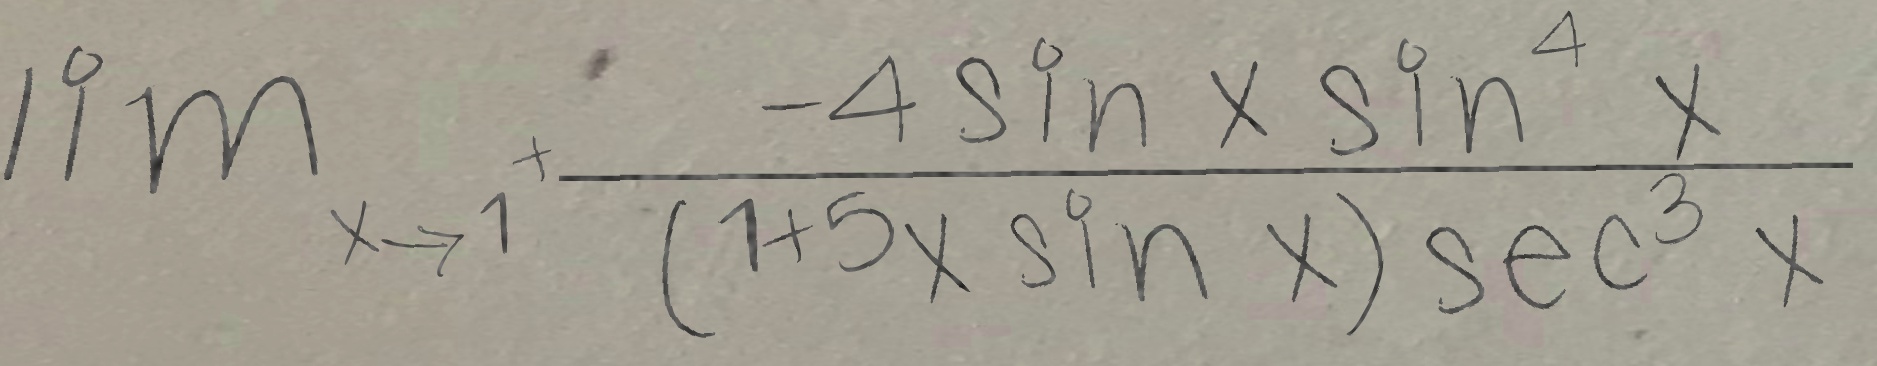 \lim_{x \to 1^+} \frac{-4 \sin x \sin^4 x}{(1+5x \sin x) \sec^3 x}